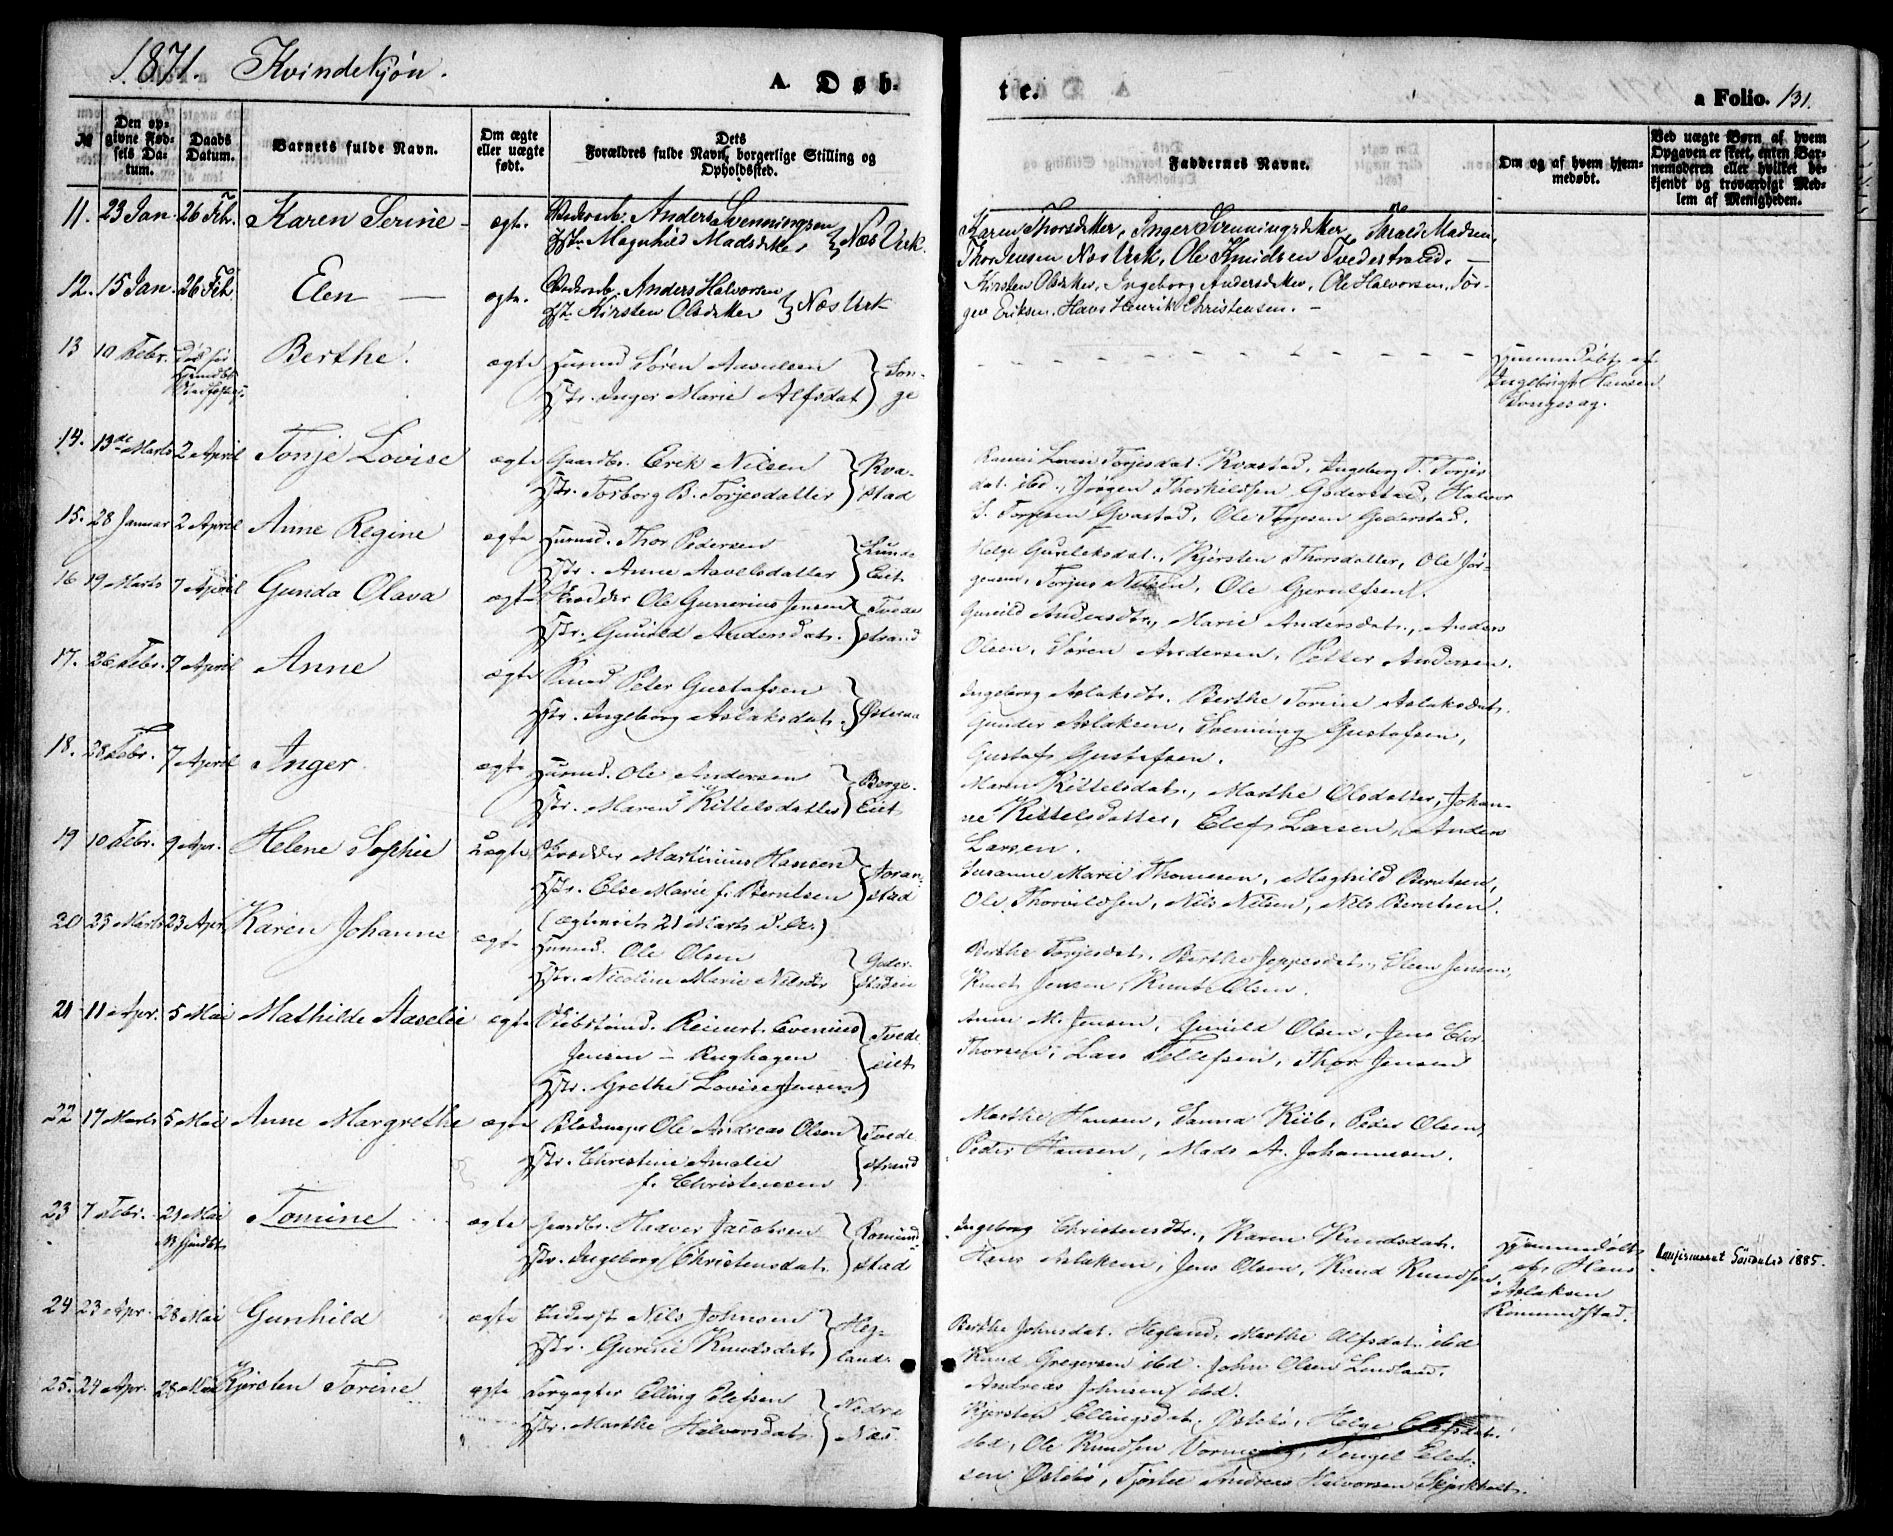 1871. Kvindekjøn.
A. Døb-
te.
a Folio. 131.
№
Den opgivne Fødsels Datum.
Daabs Datum.
Barnets fulde Navn.
Om ægte eller uægte født.
Dets Forældres fulde Navn, borgerlige Stilling og Opholdssted.
Faddernes Navne.
Om og af hvem hjemmedøbt.
Ved uægte Børn af hvem Opgaven er skeet, enten Barnemoderen eller hvilket bekjendt og troværdigt Medlem af Menigheden.
11. 23 Jan 26 Feb. Karen Terine - ægte. Anders Svenningsen
Hstr. Magnhild Madsdatter } Næs Værk.
Karen Thorsdatter, Inger Svenningsdatter, Madsen,
Thor Jensen Næs Værk, Ole Knudsen Tvedestrand. —
12. 15 Jan. 26 Feb. Elen — ægte. Anders Halvorsen
Hstr. Kirsten Olsdatter } Næs Værk
Kirsten Olsdatter, Ingeborg Andersdatter, Ole Halvorsen, Jør-
gen Eriksen, Hans Henrik Christensen. —
13 10 Febr. Berthe. ægte Husmd Søren
Hstr. Inger Marie Alfsdat } Son-
ge
Hjemmedøbt af
Ingebrigt Hansen
Songe sag.
14. 13de Marts 2 April Tonje Lovise ægte Gaardbr. Erik Nilsen
Hstr. Torborg B. Torjesdatter } Kva-
stad
Lovise Torjesdat. Kvastad, Ingeborg T. Torjes-
dat. ibd., Jørgen Thorkildsen Goderstad, Halvor
S. Torjesen Qvastad, Ole Torjesen Goderstad.
15. 28 Januar 2 April Anne Regine ægte Husmd. Thor Pedersen
Hstr. Anne } Lunde
Eiet
Helge, Kjersten Thorsdatter, Ole Jør-
gensen, Torjus Nilsen, Ole
16 19 Marts 7 April Gunda Olava ægte Ole Gunerius Jensen
Hstr. Gunild Andersdatr. } Tvede
strand
Gunild Andersdtr., Marie Andersdatr., Anders
Olsen, Søren Andersen, Petter Andersen.
17. 26 Febr. 7 April Anne ægte Peter Gustafsen
Hstr. Ingeborg Aslaksdatr. }
Ingeborg Aslaksdtr. Berthe Torine Aslaksdat.
Gunder Aslaksen, Svenning Gustafsen,
Gustaf Gustafsen.
18. 28 Febr. 7 April Inger ægte Husmd. Ole Andersen
Hstr. Maren Kittelsdatter } Berge-
Eiet
Maren Kittelsdatr., Marthe Olsdatter, Johan-
ne Kittelsdatter, Elef Larsen, Anders
Larsen.
19 10 Febr. 9 Apr. Helene Sophie Uægte Martinius Hansen
Hstr. Else Marie f. Berntsen
(ægteviet 21 Marts d. A.)
Susanne Marie Thomesen, Maghild Berntsen,
Ole Thorvildsen, Nils Nilsen, Nils Berntsen.
20 25 Marts 23 Apr. Karen Johanne ægte Husmd. Ole Olsen
Hstr. Nicoline Marie Nilsdtr } Goder-
staden
Berthe Torjesdat. Berthe Jeppesdat., Elen Jensen,
Knut Jensen, Knut Olsen.
21 11 Apr. 5 Mai Mathilde Aaselie ægte Reinert Evenius
Jensen - Rughagen
Hstr. Grethe Lovise Jensen } Tvede
eiet
Anne M. Jensen, Gunild Olsen, Jens
Thorsen, Lars Tellefsen, Thor Jensen
22 17 Marts 5 Mai Anne Margrethe ægte Ole Andreas Olsen
Hstr. Christine Amalie
f. Christensen } Tvede
strand
Marthe Hansen, Sanna Kiib, Peder Olsen,
Peder Hansen, Mads A. Johannesen.
23 7 Febr. 21 Mai Tomine ægte Gaardbr. Halvor Jacobsen
Hstr. Ingeborg Christensdat. } Romund-
stad
Ingeborg Christensdtr., Karen Knudsdat.
Hans Aslaksen, Jens Olsen, Knud Knudsen.
Hjemmedøbt
af Hans
Aslaksen
Romundstad.
Konfirmeret Søndeled 1885.
24 23 Apr. 28 Mai Gunhild ægte Inderst Nils Johnsen
Hstr. Gurine Knudsdat. } Heg-
land.
Berthe Johnsdat. Hegland, Marthe Alfsdat. ibd
Knud Gregersen ibd. John Olsen Lindland,
Andreas Johnsen ibd.
25. 24 Apr. 28 Mai Kjersten Torine ægte Forpagter Elling Elefsen
Hstr. Marthe Halvorsdat. } Nedre
Næs.
Kjersten Ellingsdat. Østebø, Helge Elefsdat.
ibd, Ole Knudsen, Tengel Elef-
sen Østebø, Andreas Halvorsen